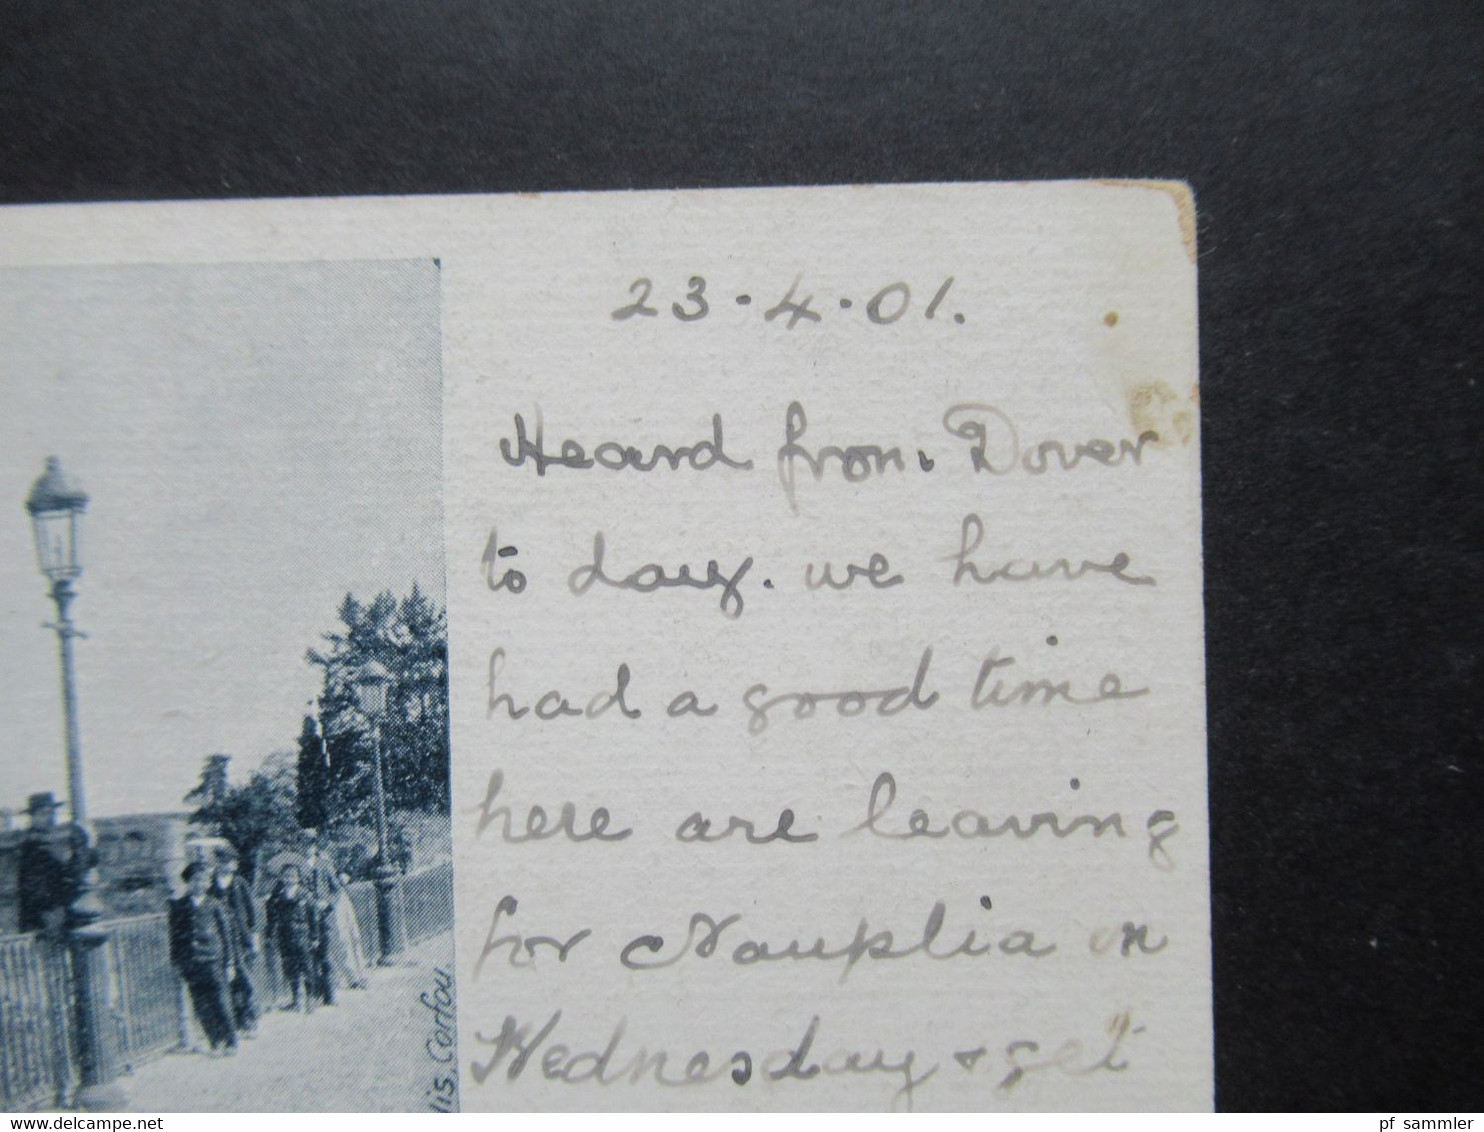 23.4.01.
Heard from Dover
to day. we have
had a good time
here are leaving
for Nauplia on
Wednesday & get
lis. Corfou
www.delcampe.net
pf_sammler